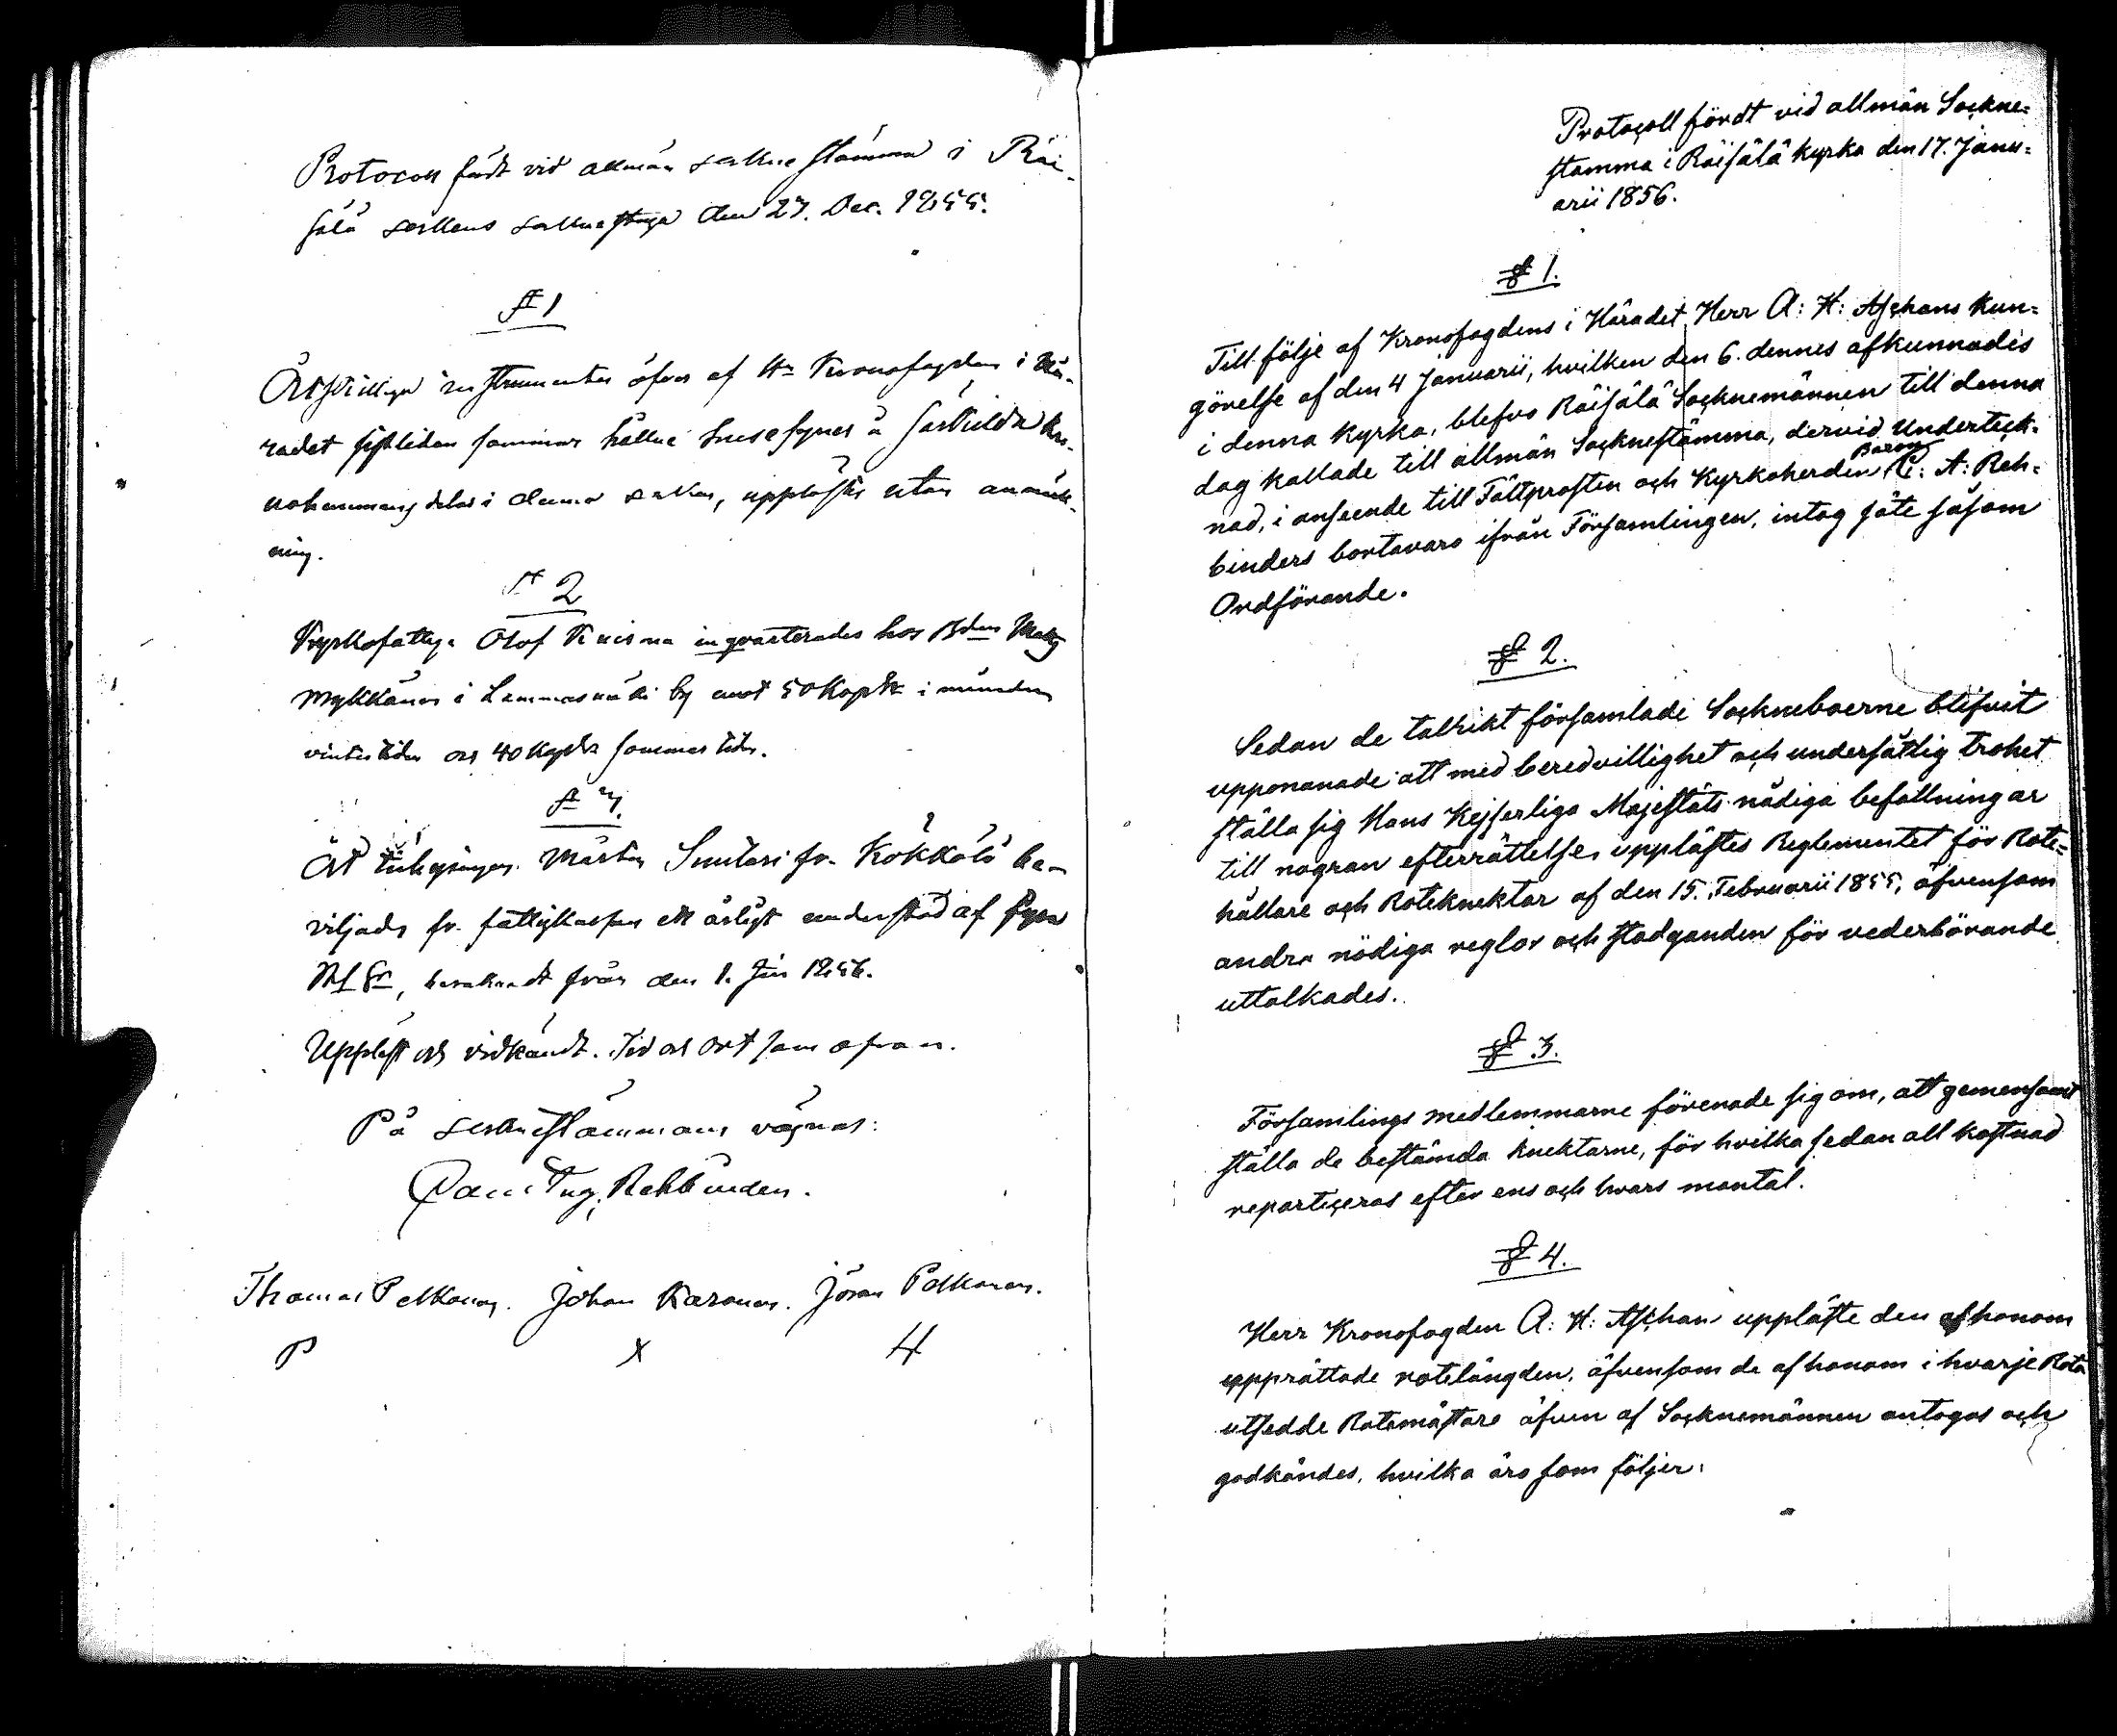 Protocoll fördt vid allmän sockne stämma i Räi-
sälä sockens socknestuga den 27. Dec. 1855.
§ 1
Åtskilliga instrumenter öfver af Hr Kronofogden i Hä-
radet sistliden sommar hållne husesyner å särskilda kro-
nohemmansdelar i denna socken, upplästes utan anmärk-
ning.
§ 2
Kyrkofattiga Olof Kuisma inqvarterades hos Bden Matts
Mykkänen i Lammasmäki by mot 50 Kop Sr i månaden
vintertiden och 40 Kop Sr sommartiden.
§ 3.
Åt Mårten Suutari fr. Kökkölä be-
viljades fr. fattigkassan ett årligt understöd af fyra
Rbl Sr, beräknadt från den 1. Jan 1856.
Uppläst och vidkändt. Tid och ort som ofvan.
På Socknestämmans vägnar:
Carl Aug. Rehbinder.
Thomas Pelkonen. Johan Karonen. Jöran Polkonen.
P X H
Protocoll fördt vid allmän Sockne=
stamma i Räisälä kyrka den 17. Janu=
arii 1856.
§ 1.
Till följe af Kronofogdens i Häradet, Herr A: H: Aschans kun=
görelse af den 4 Januarii, hvilken den 6. dennes afkunnades
i denna kyrka, blefvo Räisälä Socknemännen till denna
dag kallade till allmän Socknestämma, dervid Underteck=
nad, i anseende till Fältprosten och Kyrkoherden Baron C: A: Reh=
binders bortavaro ifrån Församlingen, intog säte såsom
Ordförande.
§ 2.
Sedan de talrikt församlade Sockneboerne blifvit
uppmanade att med beredvillighet och undersåtlig trohet
ställa sig Hans Kejserliga Majestäts nådiga befallningar
till nogran efterrättelse, upplästes Reglementet för Rote=
hållare och Roteknektar af den 15. Februarii 1855, äfvensom
andra nödiga reglor och stadganden för vederbörande
uttolkades.
§ 3.
Församlings medlemmarne förenade sig om, att gemensamt
ställa de bestämda knektarne, för hvilka sedan all kostnad
reparticeras efter ens och hvars mantal.
§ 4.
Herr Kronofogden A: H: Aschan uppläste den af honom
upprättade rotelängden, äfvensom de af honom i hvarje Rota
utsedde Rotemästare äfven af Socknemännen antogos och
godkändes, hvilka äro som följer: